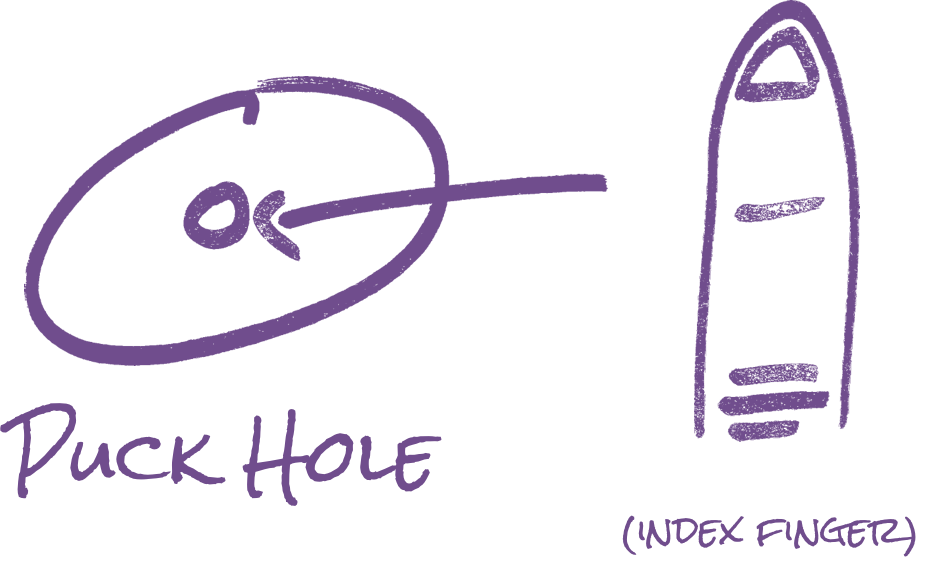 Puck Hole
(index finger)